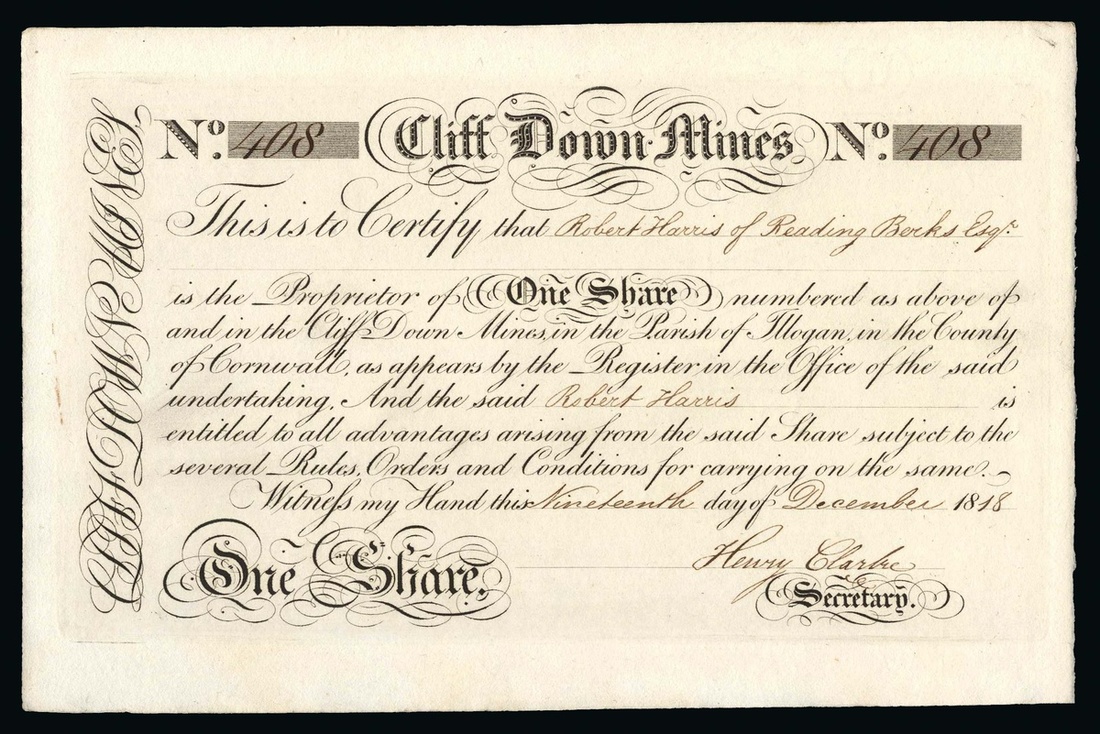 No. 408 Cliff Down Mines No. 408
This is to Certify that Robert Harris of Reading Berks Esqr.
is the Proprietor of One Share numbered as above of
and in the Cliff Down Mines, in the Parish of Illogan, in the County
of Cornwall, as appears by the Register, in the Office of the said
undertaking, And the said Robert Harris is
entitled to all advantages arising from the said Share subject to the
several Rules, Orders and Conditions for carrying on the same.
Witneſs my Hand this Nineteenth day of December 1818
Henry Clarke
One Share. Secretary.
CLIFF DOWN MINES